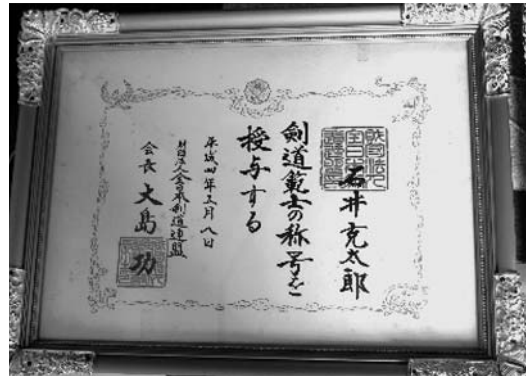 石井克太郎
剣道範士の称号を
授与する
平成四年五月八日
財団法人全日本剣道連盟
会長 大島 功